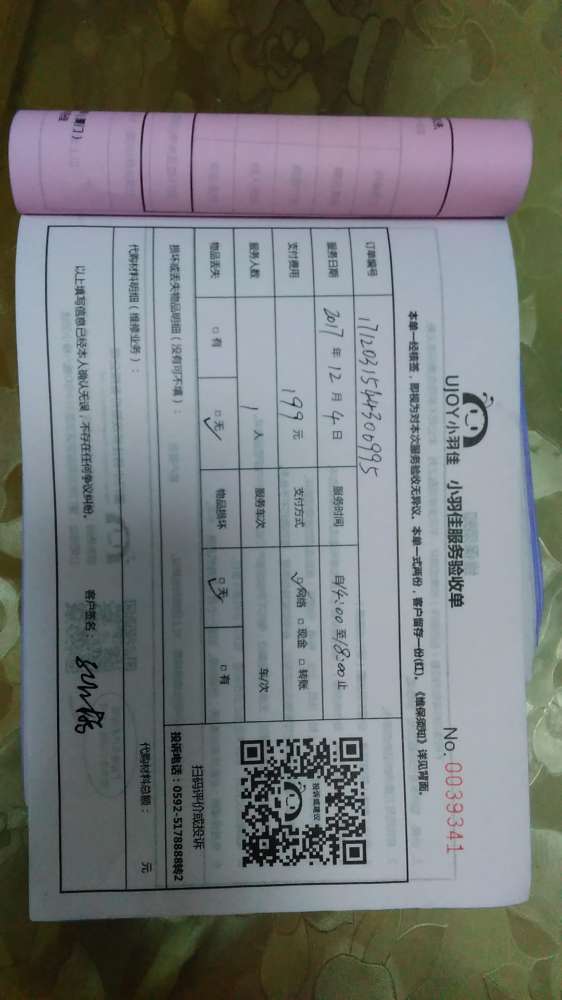 UJOY小羽佳 小羽佳服务验收单
No. 0039341
本单一经核签，即视为对本次服务验收无异议。本单一式两份，客户留存一份(红)。《维保须知》详见背面。
订单编号 17120315644300995
服务日期 2017 年 12 月 4 日 服务时间 自14:00 至18:00 止
支付费用 199 元 支付方式 网络 □ 现金 □ 转账
服务人数 1 人 服务车次 车/次
物品丢失 □ 有 □ 无 物品损坏 □ 无 □ 有
损坏或丢失物品明细（没有可不填）：
投诉或建议
扫码评价或投诉
投诉电话：0592-5178888转2
代购材料明细（维修业务）： 代购材料总额： 元
以上填写信息已经本人确认无误，不存在任何争议纠纷。 客户签名：